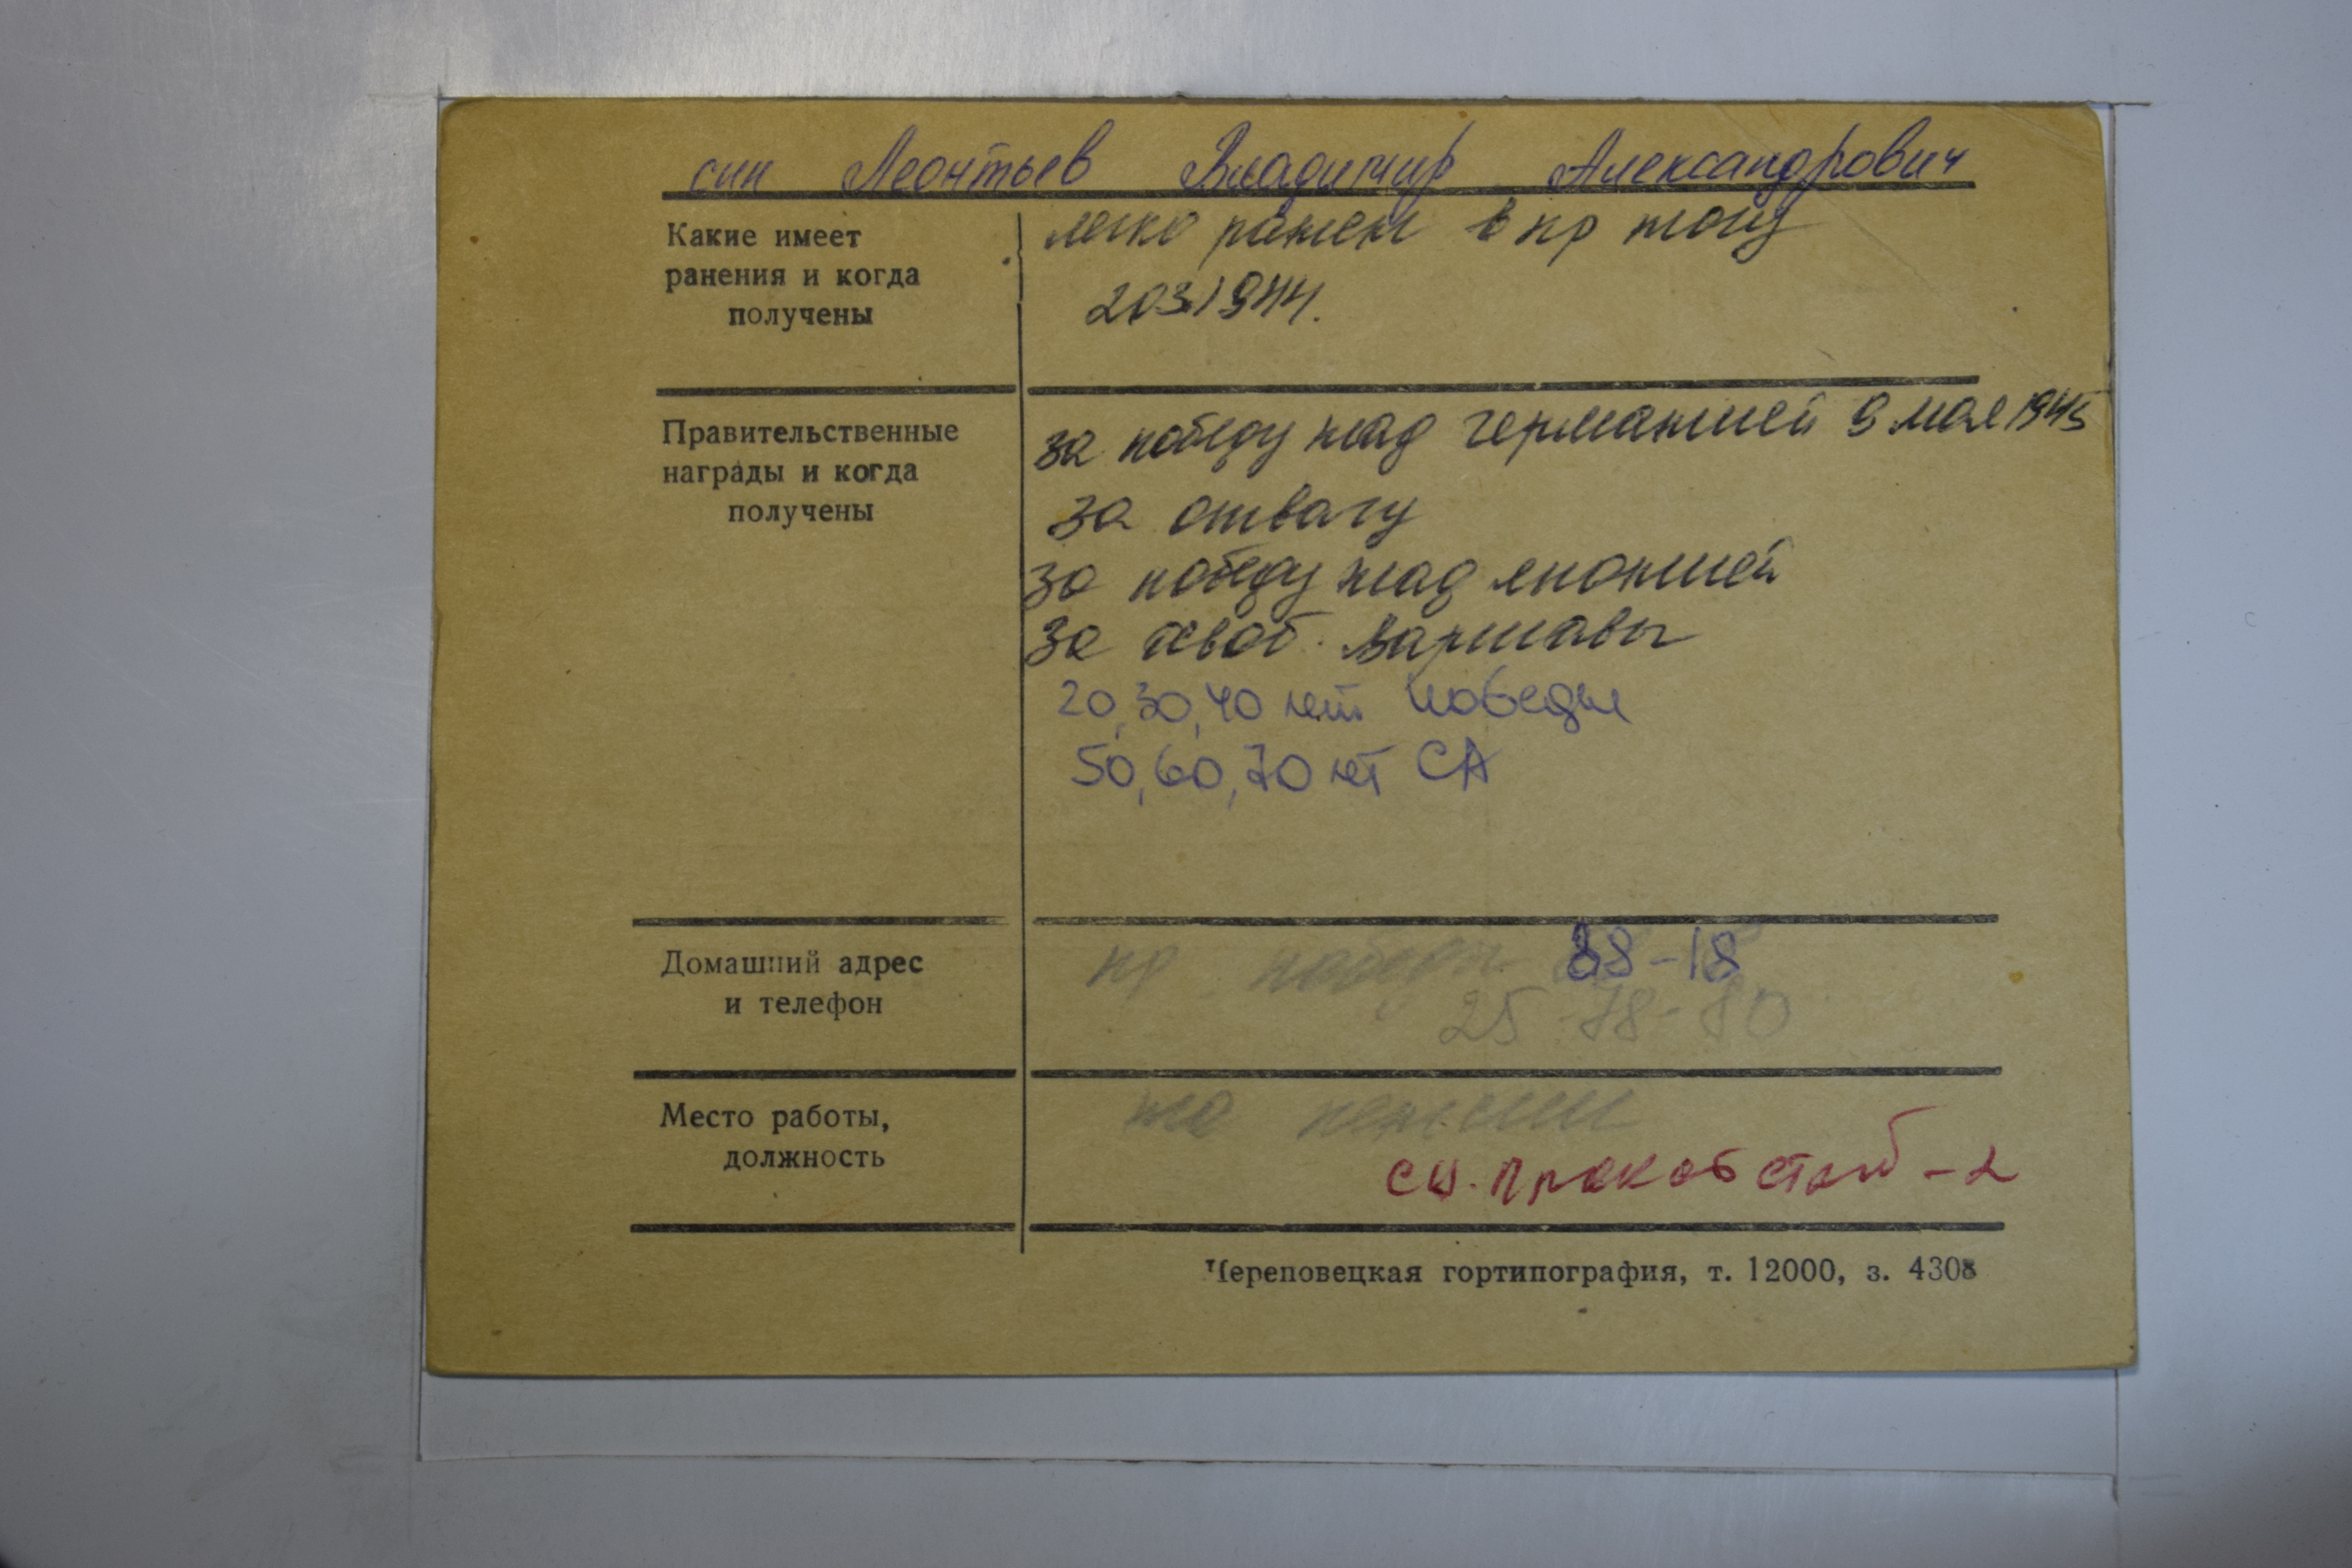 син Леонтьев Владимир Александрович
Какие имеет
ранения и когда
получены
легко ранен в пр ногу
20 3 1944.
Правительственные
награды и когда
получены
за победу над германией 9 мая 1945
за отвагу
за победу над японией
за освоб. Варшавы
20, 30, 40 лет победы
50, 60, 70 лет СА
Домашний адрес
и телефон
пр победы 88-18
25-78-80
Место работы,
должность
на пенсии
сц. Прокат стан - 2
Череповецкая гортипография, т. 12000, з. 4308